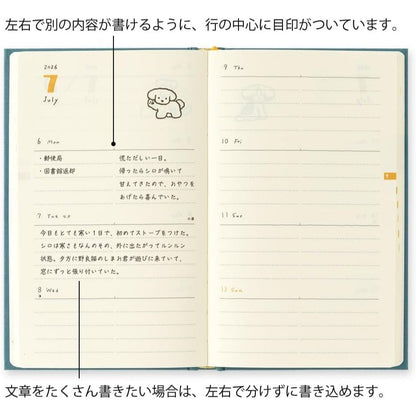 左右で別の内容が書けるように、行の中心に目印がついています。
2026
7
July
6 Mon
・郵便局
・図書館返却
慌ただしい一日。
帰ったらシロが鳴いて
甘えてきたので、おやつを
あげたら喜んでいた。
7 Tue
今日もとても寒い1日で、初めてストーブをつけた。
シロは寒さもなんのその、外に出たがってルンルン
状態。夕方に野良猫のしまお君が遊びに来ていて、
窓にずっと張り付いていた。
8 Wed
9 Thu
10 Fri
11 Sat
12 Sun
7
文章をたくさん書きたい場合は、左右で分けずに書き込めます。